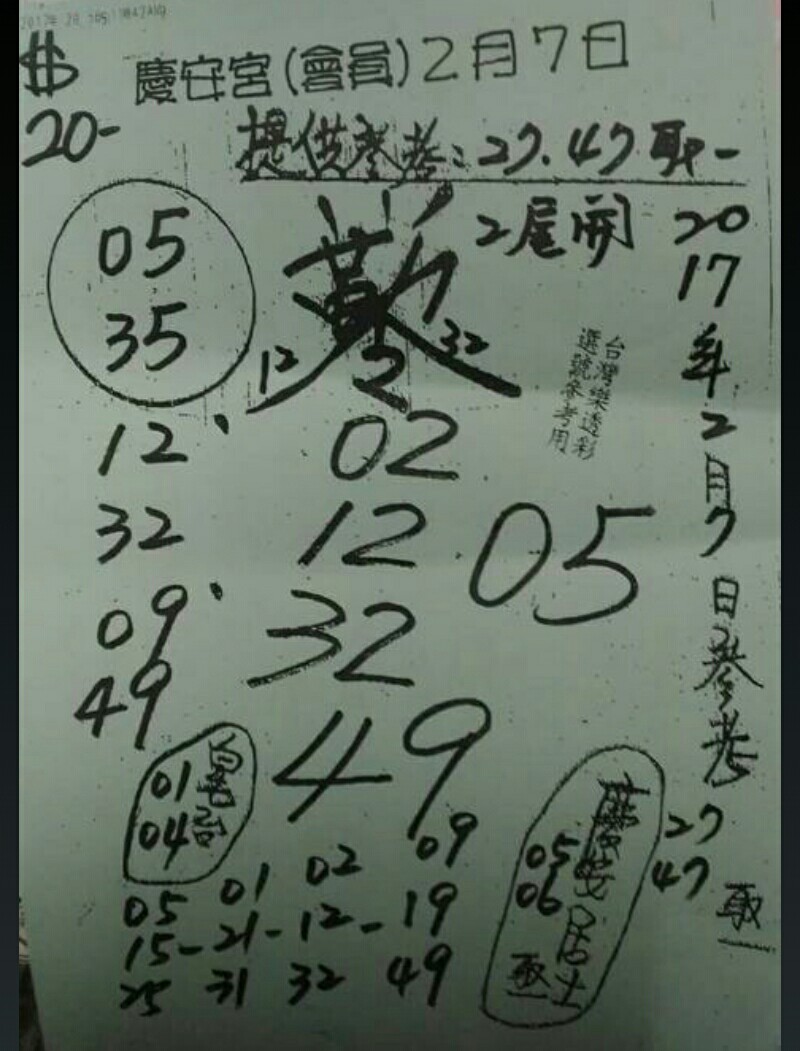 $
20-
慶安宮(會員)2月7日
提供參考:27.47取一
2尾開
2017年2月7日參考
27
47
取一
05
35
12 2 32
台灣樂透彩
選號參考用
12
32
09
49
02
12
32
49
05
01
04
05 01 02 09
15-21-12-19
25 31 32 49
慶安居士
05
06
取